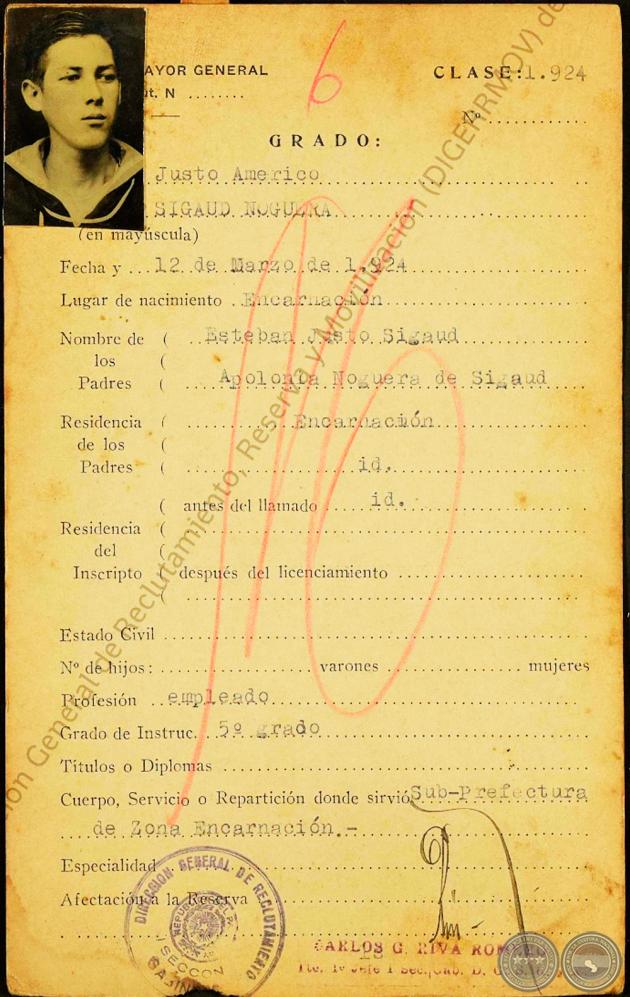 MAYOR GENERAL
CLASE: 1.924
6
út. N ........
Nº ............
GRADO:
Justo Americo
SIGAUD NOGUERA
(en mayúscula)
Fecha y ... 12 de Marzo de 1.924
Lugar de nacimiento . Encarnación
Nombre de ( Esteban Justo Sigaud
los (
Padres ( Apolonia Noguera de Sigaud
Residencia ( Encarnación
de los (
Padres ( id.
( antes del llamado id.
Residencia (
del (
Inscripto ( después del licenciamiento
Estado Civil
Nº de hijos: varones mujeres
Profesión empleado
Grado de Instruc. 5º grado
Títulos o Diplomas
Cuerpo, Servicio o Repartición donde sirvió Sub-Prefectura
de Zona Encarnación.-
Especialidad
Afectación a la Reserva
DIRECCION GENERAL DE RECLUTAMIENTO
CARLOS G. RIVA
General de Reclutamiento, Reserva y Movilización (DIGERRMOV) de